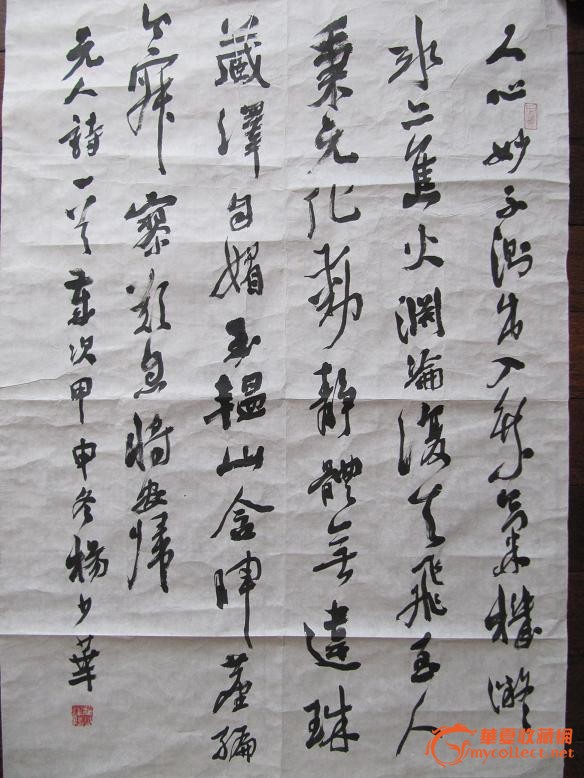 人心妙不測出入乘氣機凝
冰亦焦火淵淪復天飛至人
秉元化動靜體無違珠
藏澤自媚玉韞山含暉塵編
今寂寥歎息將安歸
元人詩一首歲次甲申冬楊少華
華夏收藏網
mycollect.net